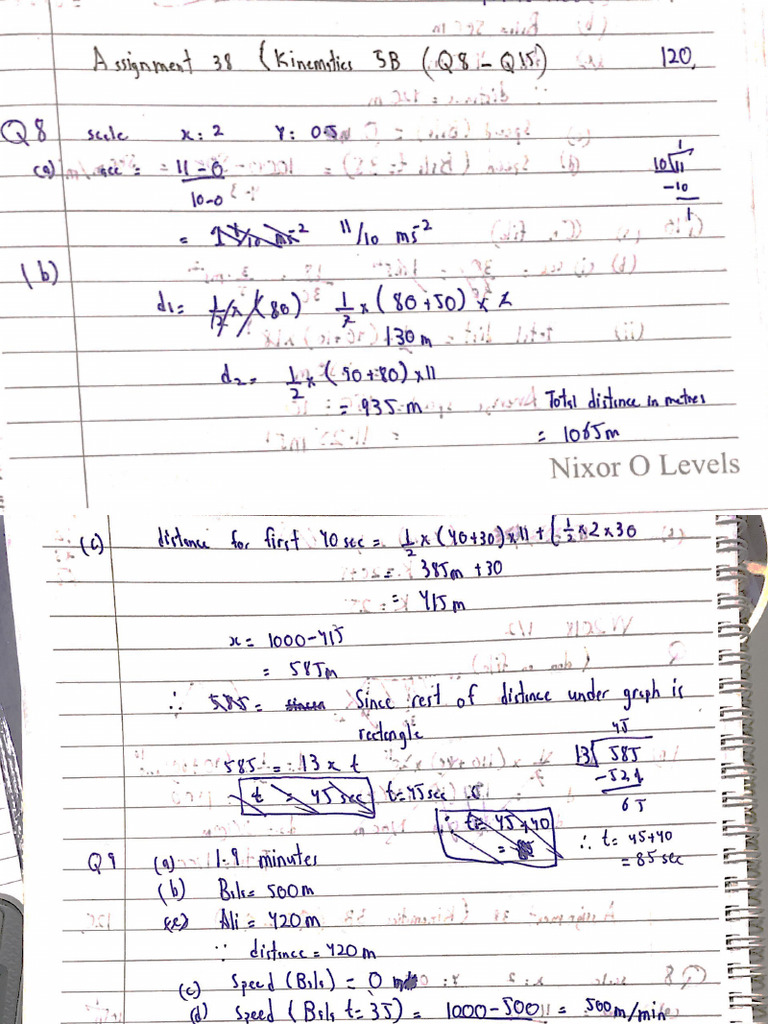 Assignment 38 (Kinematics 3B (Q8 - Q15) 120,
Q8 scale x: 2 Y: 0.5
(a) acc = 11 - 0 / 10-0
10√11
-10
1
= 11/10 ms-2
(b)
d1 = 1/2 x (80) 1/2 x (80 + 50) x 2
130 m
d2 = 1/2 x (90 + 80) x 11
= 935 m Total distance in metres
= 1065m
Nixor O Levels
(c) distance for first 40 sec = 1/2 x (40+30) x 11 + (1/2 x 2 x 30
= 385m + 30
= 415m
x = 1000-415
= 585m
∴ 585 = Since rest of distance under graph is
rectangle
585 = 13 x t
45
13√585
-52↓
65
t = 45 sec t = 45 sec
∴ t = 45 + 40
∴ t = 45+40
= 85 sec
Q9 (a) 1.9 minutes
(b) Bila = 500m
(c) Ali = 420m
∵ distance = 420 m
(c) Speed (Bila) = 0
(d) Speed (Bila t=35) = 1000-500 = 500m/min